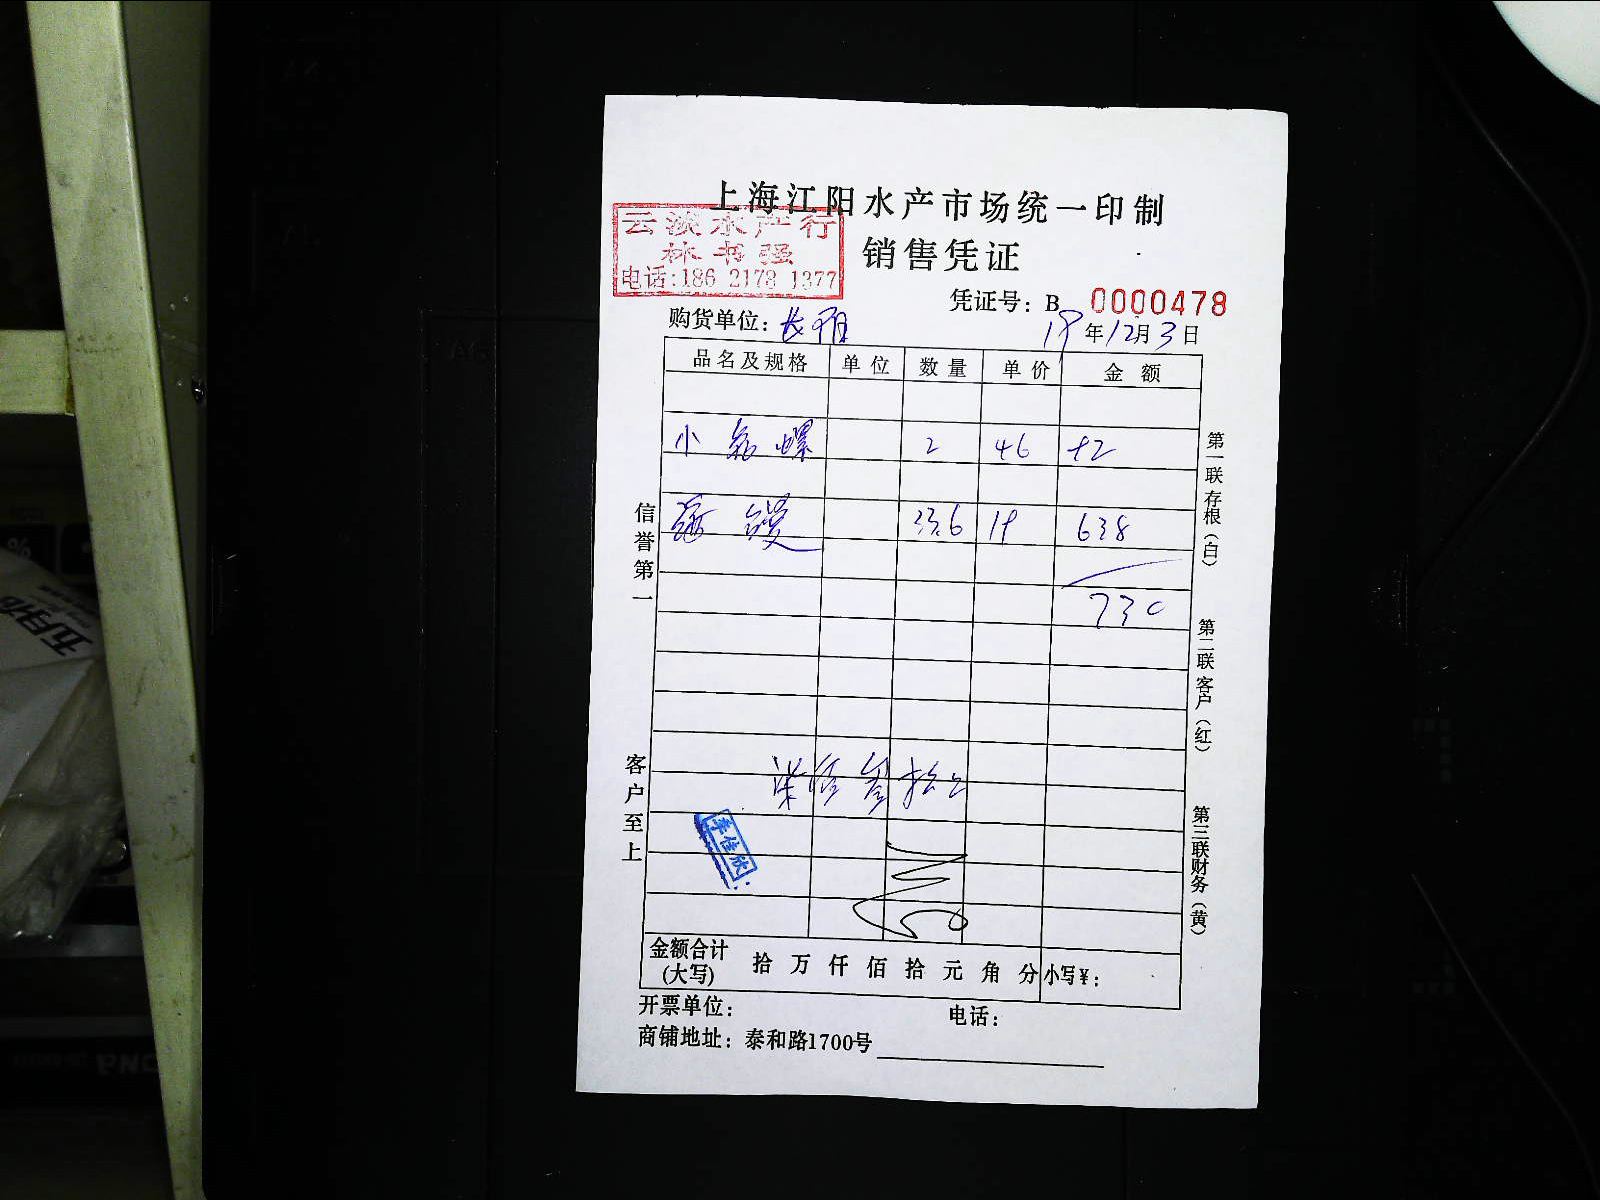 上海江阳水产市场统一印制
云淡水产行
林书强
电话:186 2178 1377
销售凭证
凭证号: B 0000478
购货单位: 长
19年12月3日
品名及规格 单位 数量 单价 金额
小 螺 2 46 92
33.6 19 638
730
柒佰叁拾
李佳欣
信誉第一
客户至上
第一联存根(白)
第二联客户(红)
第三联财务(黄)
金额合计(大写) 拾 万 仟 佰 拾 元 角 分 小写¥:
开票单位: 电话:
商铺地址: 泰和路1700号